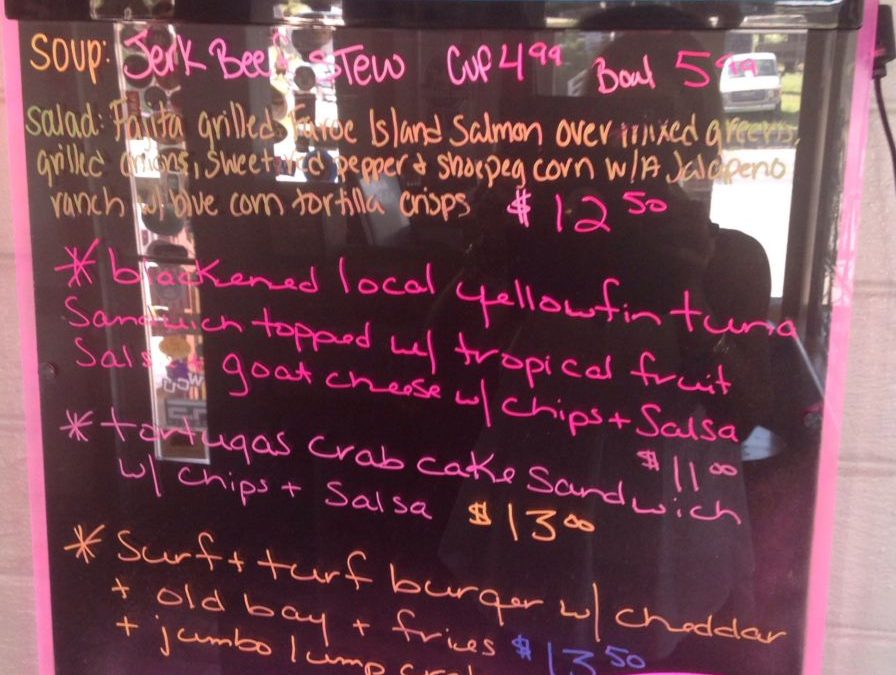 Soup: Jerk Beef Stew Cup 4.99 Bowl 5.99
Salad: Fajita grilled Faroe Island Salmon over mixed greens,
grilled onions, sweet red pepper & shoepeg corn w/A Jalapeno
ranch w/ blue corn tortilla crisps $12.50
* blackened local yellowfin tuna
Sandwich topped w/ tropical fruit
Salsa goat cheese w/ chips + Salsa
$11.00
* tortugas crab cake Sandwich
w/ chips + Salsa $13.00
* Surf + turf burger w/ cheddar
+ old bay + fries $13.50
+ jumbo lump